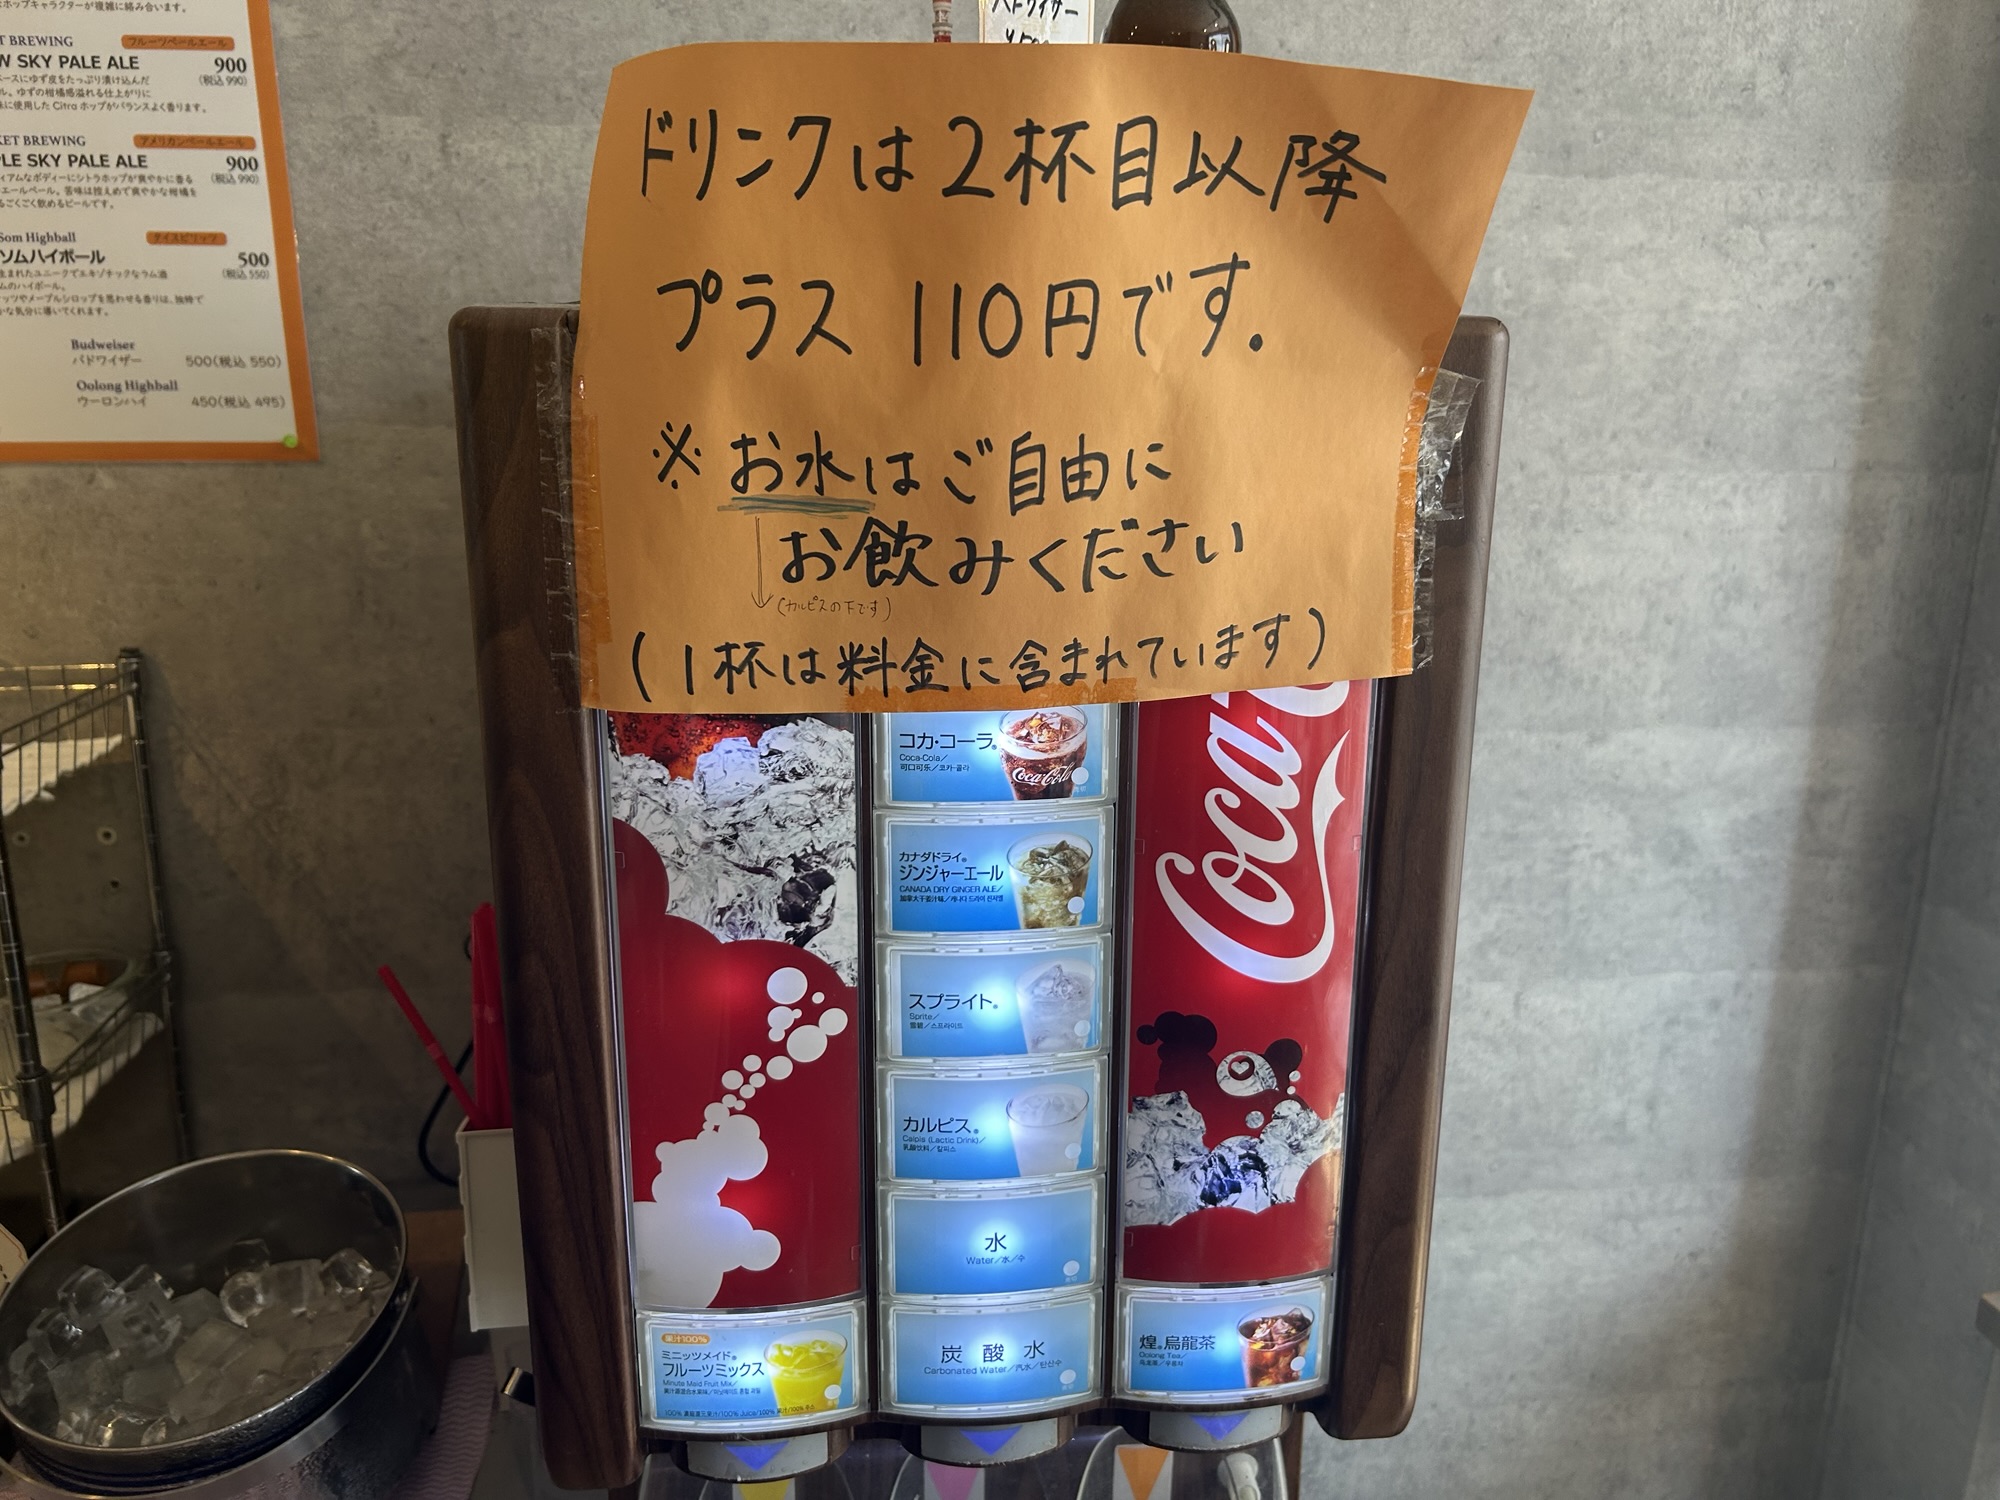 ホップキャラクターが複雑に絡み合います。
BREWING
フルーツペールエール
SKY PALE ALE
900
(税込 990)
ースにゆず皮をたっぷり漬け込んだ
ル。ゆずの柑橘感溢れる仕上がりに
に使用した Citra ホップがバランスよく香ります。
KET BREWING
アメリカンペールエール
PLE SKY PALE ALE
900
(税込 990)
ィアムなボディーにシトラホップが爽やかに香る
エールペール。苦味は控えめで爽やかな柑橘を
るごくごく飲めるビールです。
Som Highball
ソムハイボール
500
(税込 550)
生まれたユニークでエキゾチックなラム酒
ムのハイボール。
ッツやメープルシロップを思わせる香りは、独特で
かな気分に導いてくれます。
Budweiser
バドワイザー 500(税込 550)
Oolong Highball
ウーロンハイ 450(税込 495)
バドワイザー
ドリンクは2杯目以降
プラス 110円です.
※ お水はご自由に
お飲みください
(カルピスの下です)
(1杯は料金に含まれています)
コカ・コーラ®
Coca-Cola/
可口可乐/코카·콜라
Coca-Cola
カナダドライ®
ジンジャーエール
CANADA DRY GINGER ALE/
加拿大干姜汁味/캐나다 드라이 진저엘
スプライト®
Sprite/
雪碧/스프라이트
カルピス®
Calpis (Lactic Drink)/
乳酸饮料/칼피스
水
Water/水/수
炭酸水
Carbonated Water/汽水/탄산수
Coca
果汁100%
ミニッツメイド®
フルーツミックス
Minute Maid Fruit Mix/
煌®烏龍茶
Oolong Tea/
乌龙茶/우롱차